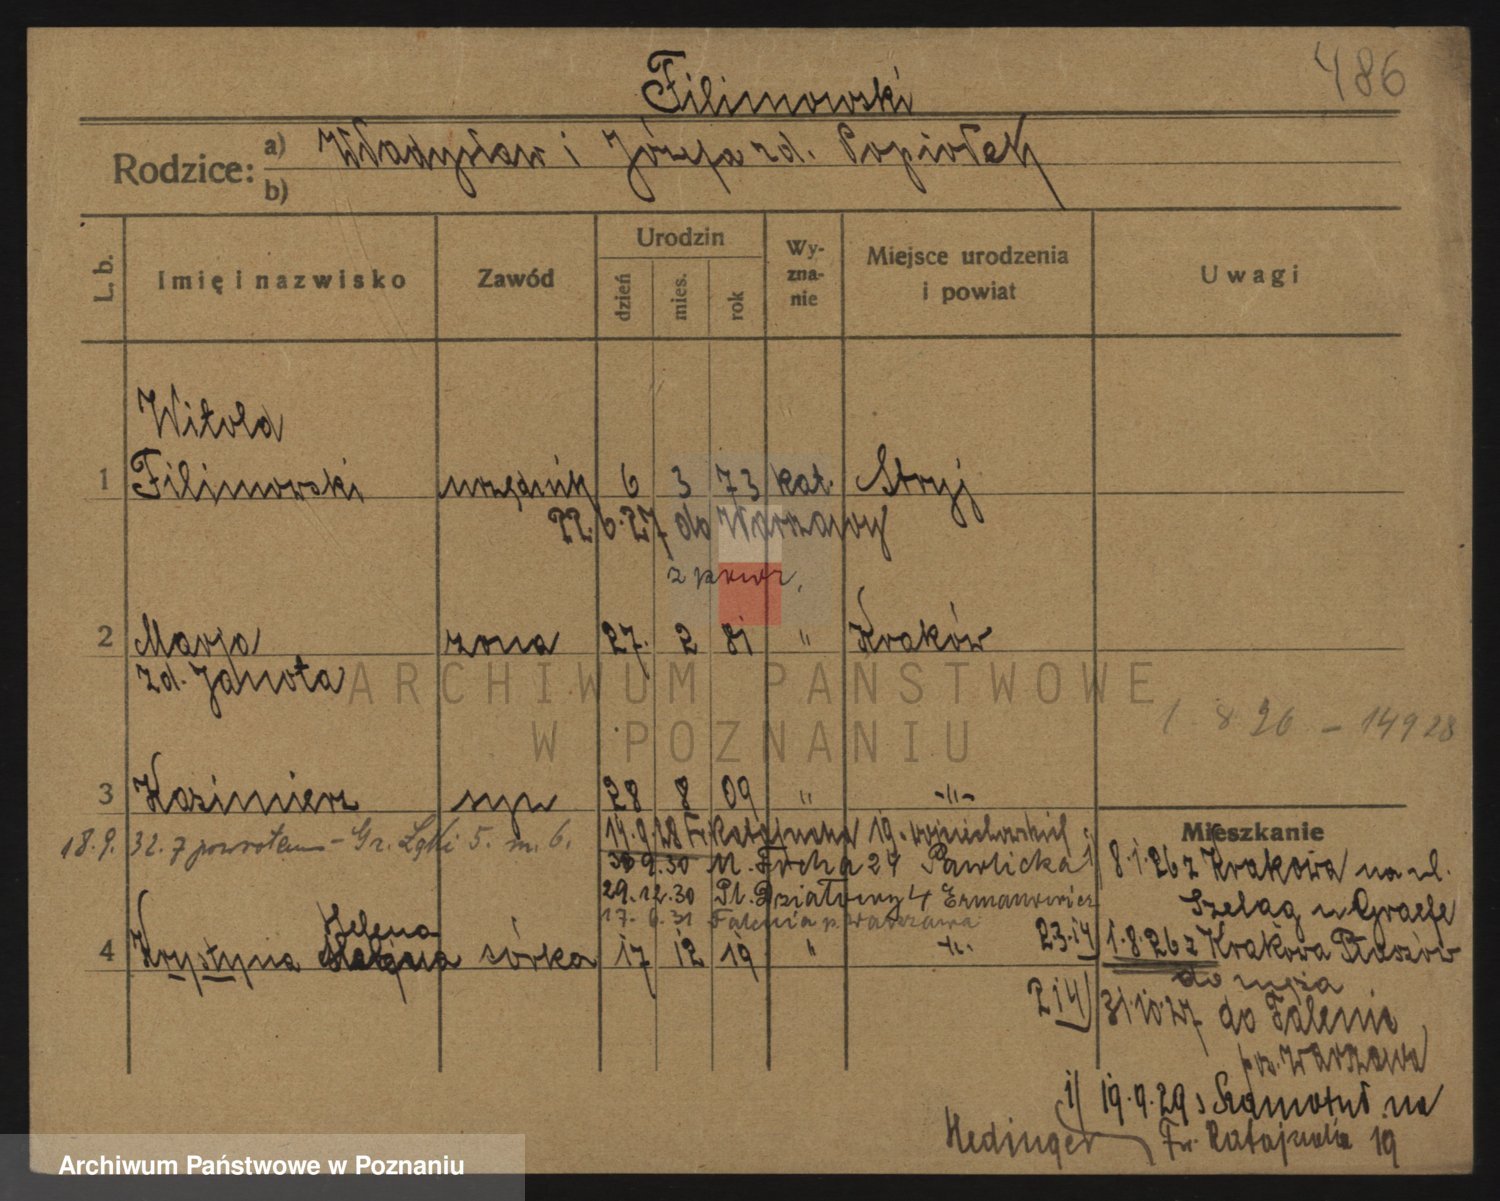 486
Filimowski
Rodzice: a) Władysław i Józefa zd. Popiołek
b)
L. b.
Imię i nazwisko
Zawód
Urodzin
dzień
mies.
rok
Wy-
zna-
nie
Miejsce urodzenia
i powiat
Uwagi
Witold
1 Filimowski urzędnik 6 3 73 kat. Stryj
22.6.27 do Warszawy
2 Marja żona 27. 2 81 " Kraków
zd. Janota
ARCHIWUM PAŃSTWOWE
W POZNANIU
1 8 26 - 14928
3 Kazimierz syn 28 8 09 " -"-
14.9.28 Fr. Ratajczaka 19.
18.9.32. z powrotem - Gr. Łąki 5. m. 6.
30 9.30 M. Focha 24 Pawlicka
29.12.30 Pl. Działowy 4
17. 6.31 Falenia p. Warszawa
Helena
4 Krystyna córka 17 12 19 " -"-
Mieszkanie
8.1.26 z Krakowa na ul.
Szeląg u Graefe
23.14) 1.8.26 z Krakowa Płaszów
do męża
214) 31.10.27 do Falenia
pow. Warszawa
1) 19.9.29 z Szamotuł na
Hedinger Fr. Ratajczaka 19
Archiwum Państwowe w Poznaniu